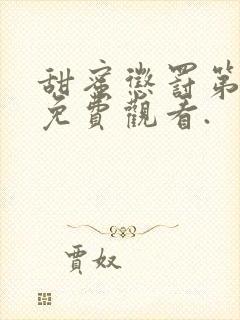 甜蜜懲罰第
免費觀看.
賈奴